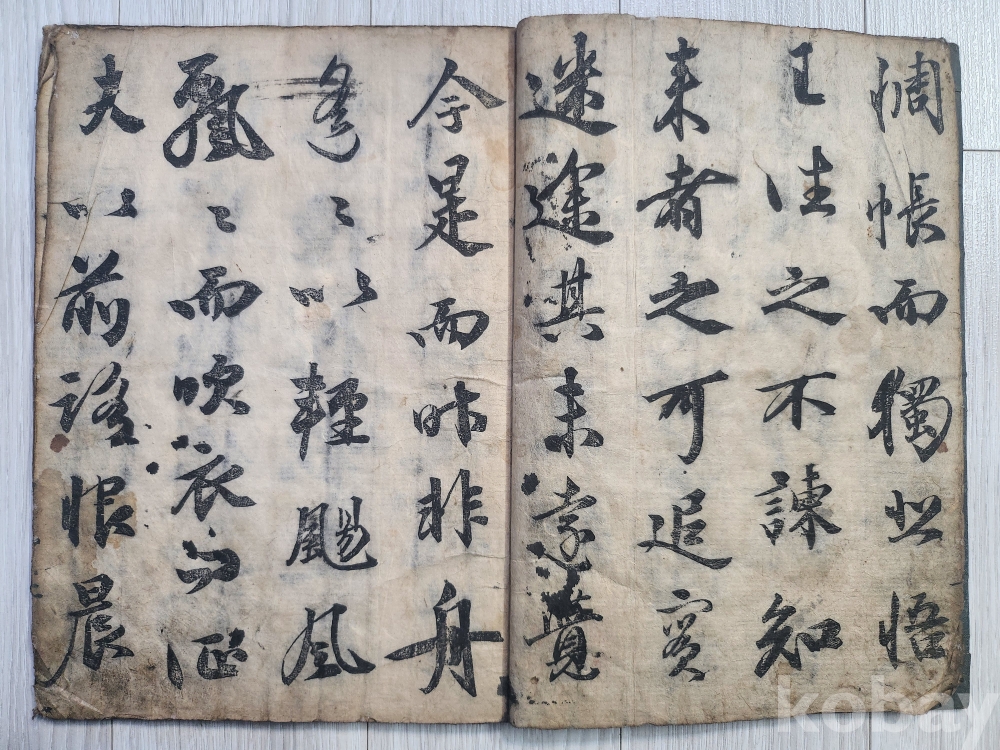 惆帳而獨悲悟
已往之不諫知
来者之可追實
迷途其未遠覺
今是而昨非舟
遙〻以輕颺風
飄〻而吹衣問征
夫以前路恨晨
kobay